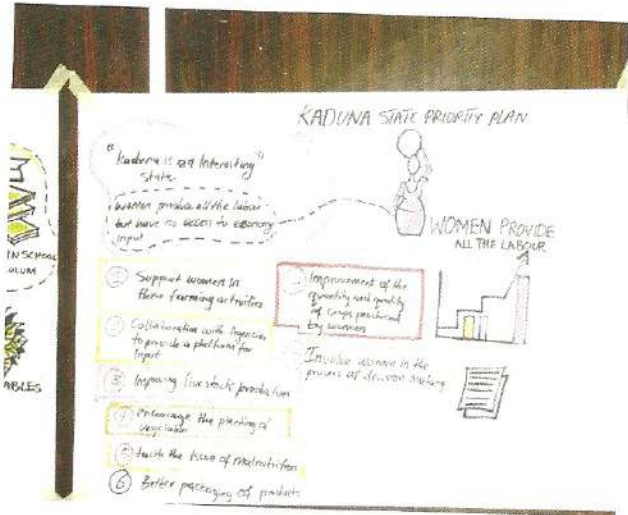 KADUNA STATE PRIORITY PLAN
"Kaduna is an Interesting"
state
women produce all the labour
but have no access to economy
input
WOMEN PROVIDE
ALL THE LABOUR
IN SCHOOL
ULUM
ABLES
① Support women in
their farming activities
② Collaboration with Agencies
to provide a platform for
Input
③ Improving live stock production
④ encourage the planting of
vegetables
⑤ the Issue of malnutrition
⑥ Better packaging of products
Improvement of the
quantity and quality
of crops produced
by women
Involve women in the
process of decision making